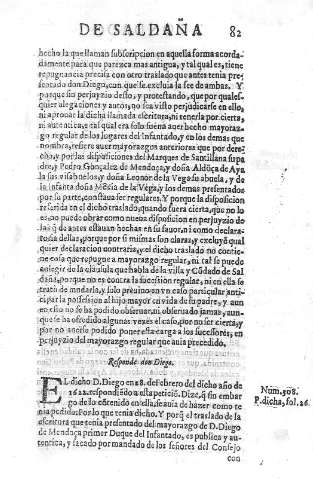 DE SALDAÑA 82
hecho la que llaman subscripcion en aquella forma acorda-
damente para que parezca mas antigua, y tal qual es, tiene
repugnancia precisa con otro traslado que antes tenia pre-
sentado don Diego, con que se excluia la fee de ambas. Y
porque sin perjuyzio desso, y protestando, que por quales-
quier alegaciones y autos, no sea visto perjudicarse en ello,
ni aprouar la dicha llamada escritura, ni tenerla por cierta,
ni autentica, è tal qual era solo suena auer hecho mayoraz-
go regular de los logares del Infantado, y en los demas que
nombra, refiere auer mayorazgos anteriores que por dere-
cha, y por las disposiciones del Marques de Santillana su pa
dre, y Pedro Gonçalez de Mendoça, y doña Aldõça de Aya
la sus visabuelos, y doña Leonor de la Vega su abuela, y de
la Infanta doña Mécia de la Vega, y los demas presentados
por su parte, constaua ser regulares. Y porque la disposicion
referida en el dicho traslado, quando fuera cierta, que no lo
es, no puede obrar como nueua disposicion en perjuyzio de
las q̃ de antes estauan hechas en su fauor, ni como declara-
toria dellas, porque por si mismas son claras, y excluyẽ qual
quier declaracion contraria, y el dicho traslado no contie-
ne cosa que repugne a mayorazgo regular, ni tal se puede
colegir de la clausula que habla de la villa y Cõdado de Sal
daña, porque no es contra la sucession regular, ni en ella se
trató de mudarla, y solo preuino vn caso particular
cipar la possession al hijo mayor en vida de su padre, y aun
en esso no se ha podido obseruar, ni obseruado jamas, aun-
que se ha ofrecido algunas vezes el caso, por no ser cierta, y
por no auerse podido poner esta carga a los sucessores, en
perjuyzio del mayorazgo regular que auia precedido.
Responde don Diego.
EL dicho D. Diego en 18. de febrero del dicho año de
1622. respondiò a esta peticiõ. Dize, q̃ sin embar
go de lo contenido en ella, se auia de hazer como te
nia pedido. Por lo que tenia dicho. Y porq̃ el traslado de la
escritura que tenia presentado del mayorazgo de D. Diego
de Mendoça primer Duque del Infantado, es publica y au-
tentica, y sacado por mandado de los señores del Consejo
con
Num. 508.
P. dicha, fol. 26.